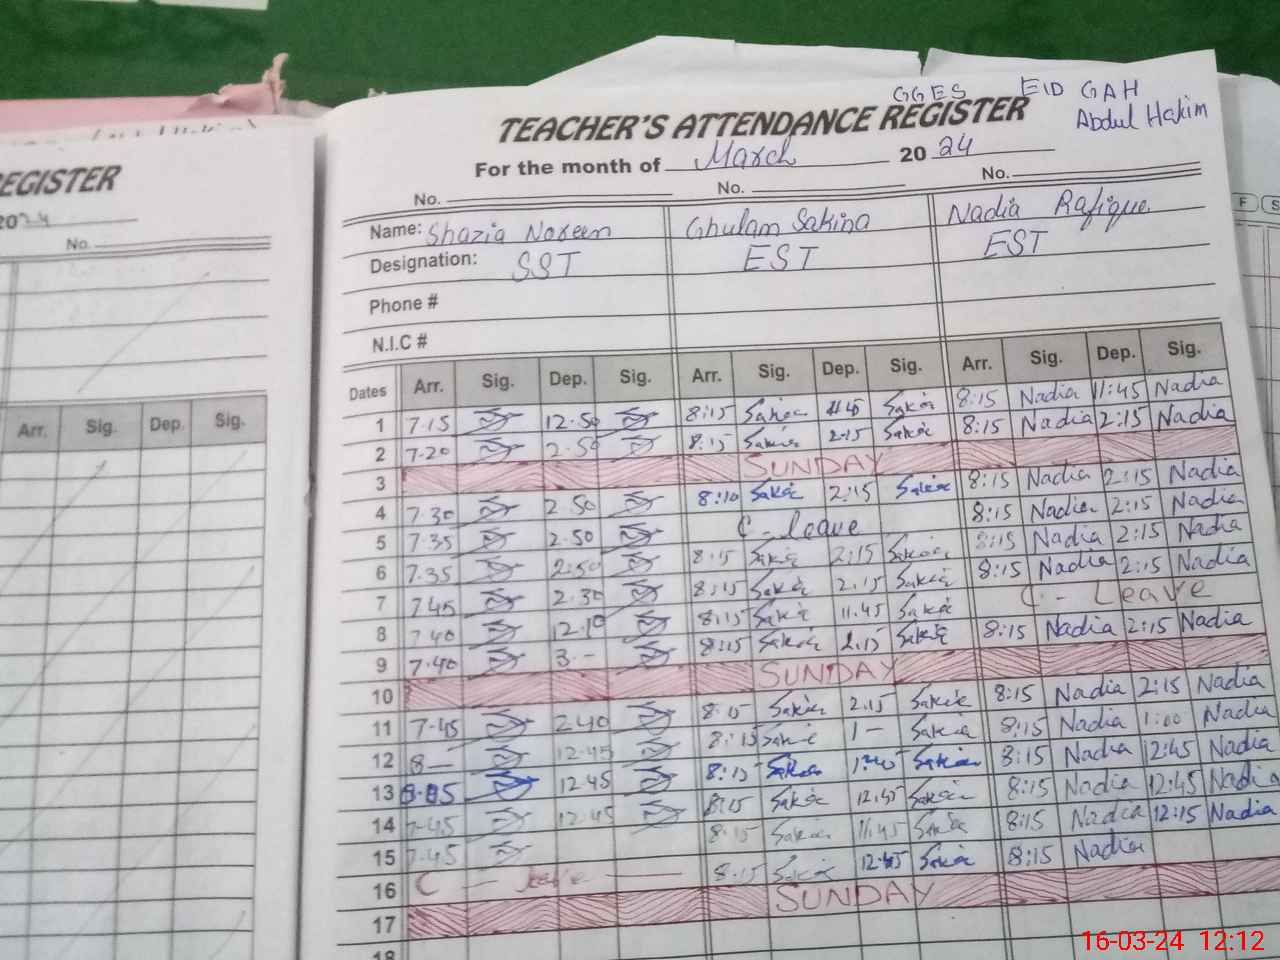 GGES EID GAH
Abdul Hakim
TEACHER'S ATTENDANCE REGISTER
For the month of March 2024
No. No. No.
Name: Shazia Noreen Ghulam Sakina Nadia Rafique
Designation: SST EST EST
Phone #
N.I.C #
Dates Arr. Sig. Dep. Sig. Arr. Sig. Dep. Sig. Arr. Sig. Dep. Sig.
1 7.15 12.50 8:15 8:15 Nadia 11:45 Nadia
2 7.20 2.50 8:15 2:15 8:15 Nadia 2:15 Nadia
3 SUNDAY
4 7.30 2.50 8:10 2:15 8:15 Nadia 2:15 Nadia
5 7.35 2.50 C-leave 8:15 Nadia 2:15 Nadia
6 7.35 2:50 8:15 2:15 8:15 Nadia 2:15 Nadia
7 7.45 2.30 8:15 2.15 8:15 Nadia 2:15 Nadia
8 7.40 12.10 8:15 11.45 C-Leave
9 7.40 3.- 8:15 2.15 8:15 Nadia 2:15 Nadia
10 SUNDAY
11 7-45 2.40 8:15 2.15 8:15 Nadia 2:15 Nadia
12 8- 12.45 8:15 1- 8:15 Nadia 1:00 Nadia
13 12.45 8:15 8:15 Nadia 12:45 Nadia
14 7-45 12.45 8:15 12.45 8:15 Nadia 12:45 Nadia
15 7.45 8:15 11.45 8:15 Nadia 12:15 Nadia
16 C - leave 8:15 12:45 8:15 Nadia
17 SUNDAY
18
REGISTER
2024
No.
Arr. Sig. Dep. Sig.
F S
16-03-24 12:12